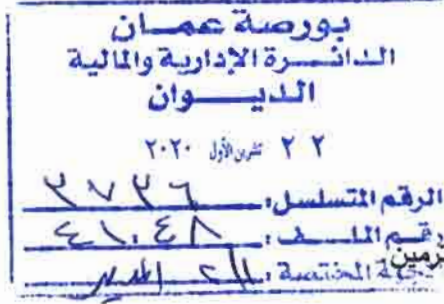 بورصة عمان
الدائرة الإدارية والمالية
الديوان
٢٢ تشرين الأول ٢٠٢٠
الرقم المتسلسل: ٣٧٣٦
رقم الملف: ٤١٠٤٨
الجهة المختصة: